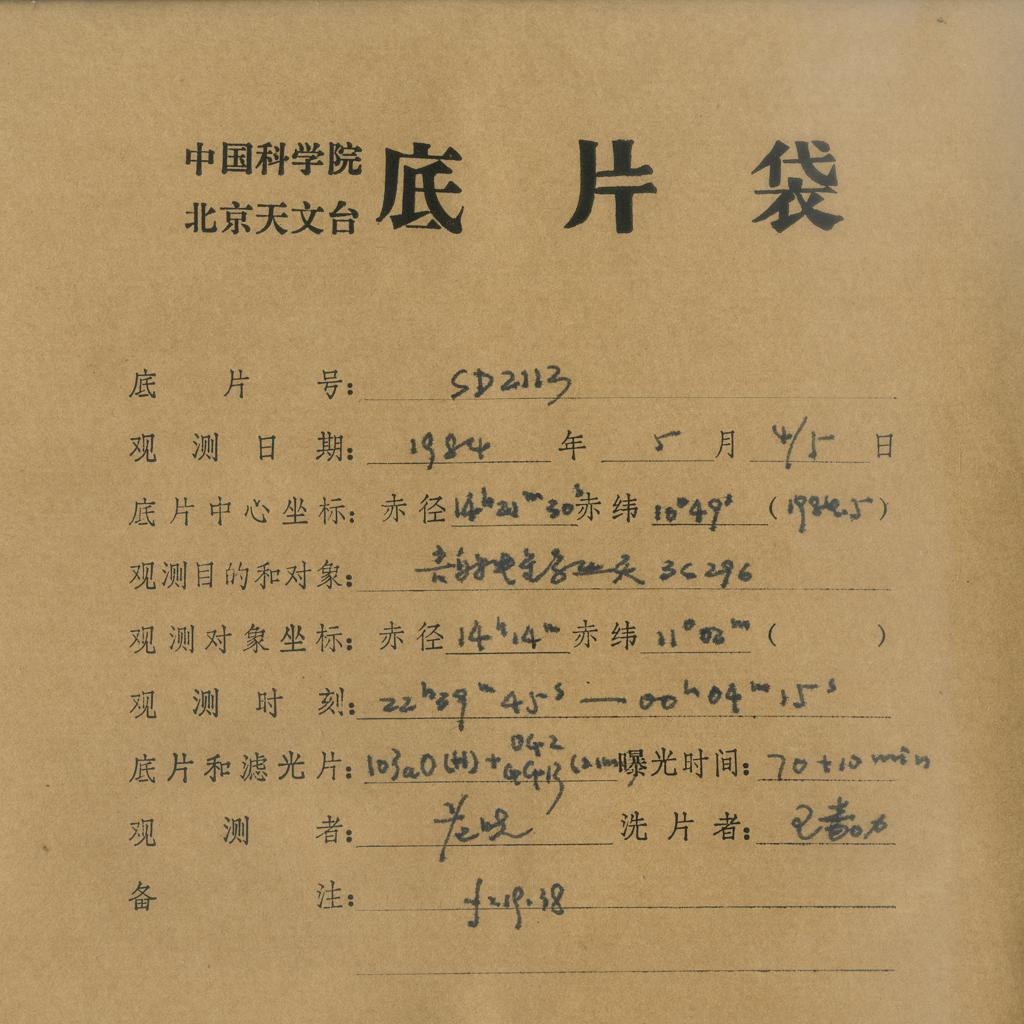 中国科学院
北京天文台
底片袋
底片号: SD2113
观测日期: 1984年5月4/5日
底片中心坐标: 赤径14ʰ21ᵐ30ˢ赤纬10°49′(1984.5)
观测目的和对象: 3C296
观测对象坐标: 赤径14ʰ14ᵐ赤纬11°02ᵐ( )
观测时刻: 22ʰ39ᵐ45ˢ—00ʰ04ᵐ15ˢ
底片和滤光片: 103aO(H)+ 曝光时间: 70+10min
观测者: 洗片者:
备注: f=19.38